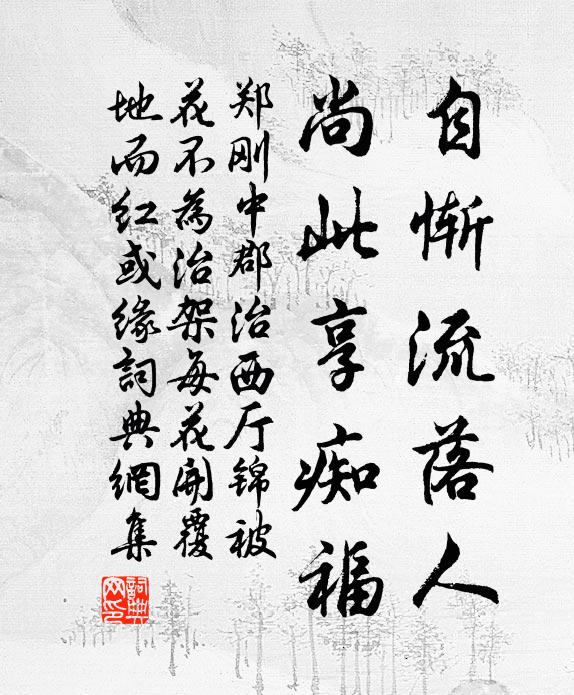 自惭流落人
尚此享痴福
郑刚中郡治西厅锦被
花不為治架每花開覆
地而紅或缘詞典網集